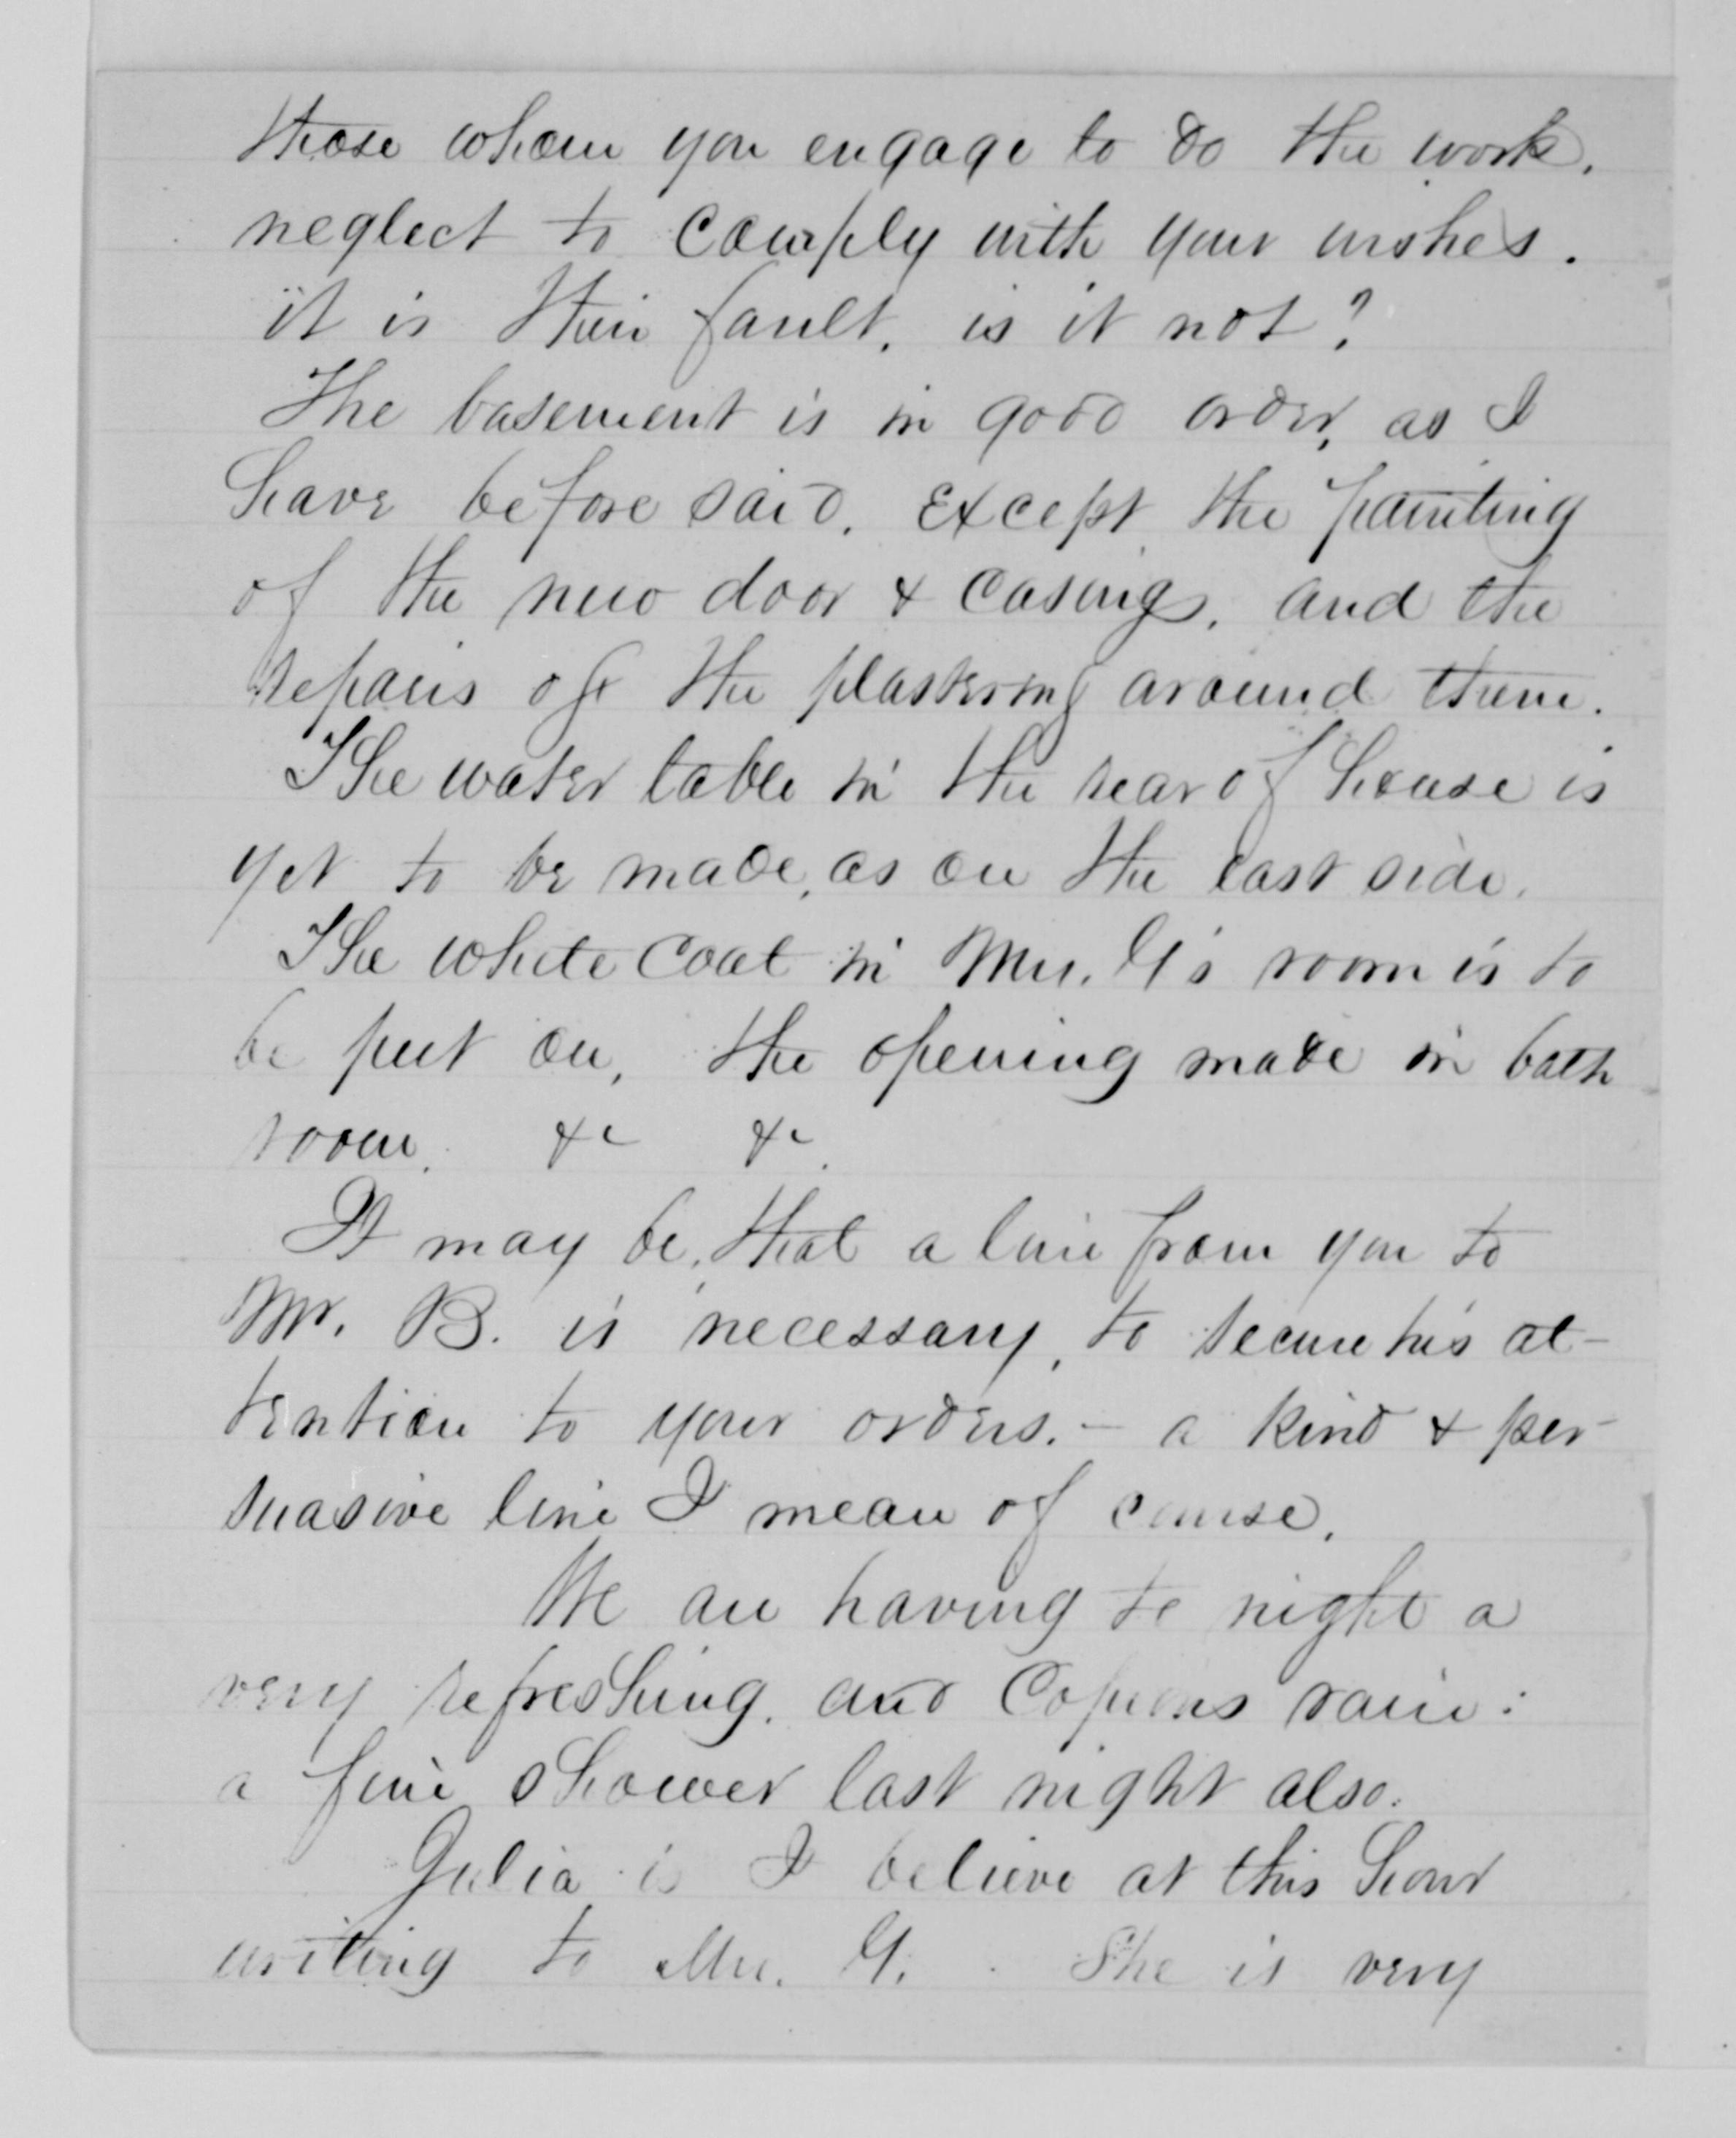 those whom you engage to do the work,
neglect to comply with your wishes.
it is their fault, is it not?
The basement is in good order, as I
have before said, except the painting
of the new door & casings, and the
repairs of the plastering around them.
The water table in the rear of house is
yet to be made, as on the east side.
The white coat in Mrs. G's room is to
be put on, the opening made in bath
room. &c &c.
It may be, that a line from you to
Mr. B. is necessary, to secure his at-
tention to your orders. - a kind & per-
suasive line I mean of course.
We are having to night a
very refreshing, and copious rain:
a fine shower last night also.
Julia is I believe at this hour
writing to Mrs. G. She is very